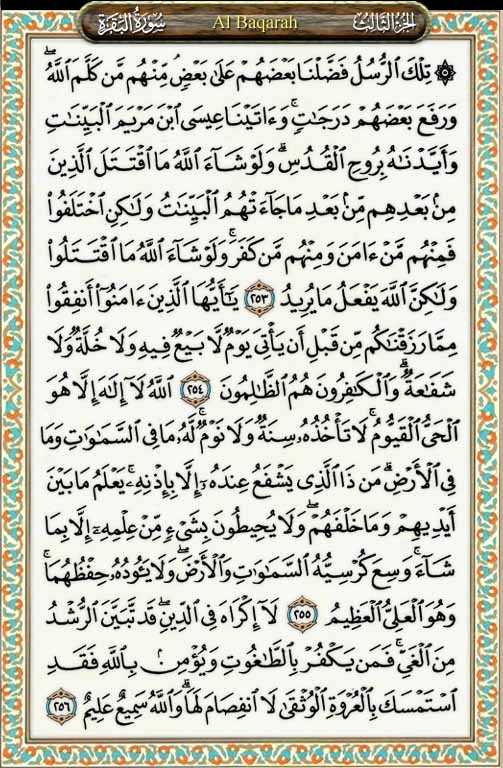 سُورَةُ البَقَرَةِ Al Baqarah الجُزءُ الثَّالِثُ
۞ تِلْكَ ٱلرُّسُلُ فَضَّلْنَا بَعْضَهُمْ عَلَىٰ بَعْضٍۘ مِّنْهُم مَّن كَلَّمَ ٱللَّهُۖ
وَرَفَعَ بَعْضَهُمْ دَرَجَٰتٍۚ وَءَاتَيْنَا عِيسَى ٱبْنَ مَرْيَمَ ٱلْبَيِّنَٰتِ
وَأَيَّدْنَٰهُ بِرُوحِ ٱلْقُدُسِۗ وَلَوْ شَآءَ ٱللَّهُ مَا ٱقْتَتَلَ ٱلَّذِينَ
مِنۢ بَعْدِهِم مِّنۢ بَعْدِ مَا جَآءَتْهُمُ ٱلْبَيِّنَٰتُ وَلَٰكِنِ ٱخْتَلَفُوا۟
فَمِنْهُم مَّنْ ءَامَنَ وَمِنْهُم مَّن كَفَرَۚ وَلَوْ شَآءَ ٱللَّهُ مَا ٱقْتَتَلُوا۟
وَلَٰكِنَّ ٱللَّهَ يَفْعَلُ مَا يُرِيدُ ٢٥٣ يَٰٓأَيُّهَا ٱلَّذِينَ ءَامَنُوٓا۟ أَنفِقُوا۟
مِمَّا رَزَقْنَٰكُم مِّن قَبْلِ أَن يَأْتِىَ يَوْمٌ لَّا بَيْعٌ فِيهِ وَلَا خُلَّةٌ وَلَا
شَفَٰعَةٌۗ وَٱلْكَٰفِرُونَ هُمُ ٱلظَّٰلِمُونَ ٢٥٤ ٱللَّهُ لَآ إِلَٰهَ إِلَّا هُوَ
ٱلْحَىُّ ٱلْقَيُّومُۚ لَا تَأْخُذُهُۥ سِنَةٌ وَلَا نَوْمٌۚ لَّهُۥ مَا فِى ٱلسَّمَٰوَٰتِ وَمَا
فِى ٱلْأَرْضِۗ مَن ذَا ٱلَّذِى يَشْفَعُ عِندَهُۥٓ إِلَّا بِإِذْنِهِۦۚ يَعْلَمُ مَا بَيْنَ
أَيْدِيهِمْ وَمَا خَلْفَهُمْۖ وَلَا يُحِيطُونَ بِشَىْءٍ مِّنْ عِلْمِهِۦٓ إِلَّا بِمَا
شَآءَۚ وَسِعَ كُرْسِيُّهُ ٱلسَّمَٰوَٰتِ وَٱلْأَرْضَۖ وَلَا يَـُٔودُهُۥ حِفْظُهُمَاۚ
وَهُوَ ٱلْعَلِىُّ ٱلْعَظِيمُ ٢٥٥ لَآ إِكْرَاهَ فِى ٱلدِّينِۖ قَد تَّبَيَّنَ ٱلرُّشْدُ
مِنَ ٱلْغَىِّۚ فَمَن يَكْفُرْ بِٱلطَّٰغُوتِ وَيُؤْمِنۢ بِٱللَّهِ فَقَدِ
ٱسْتَمْسَكَ بِٱلْعُرْوَةِ ٱلْوُثْقَىٰ لَا ٱنفِصَامَ لَهَاۗ وَٱللَّهُ سَمِيعٌ عَلِيمٌ ٢٥٦